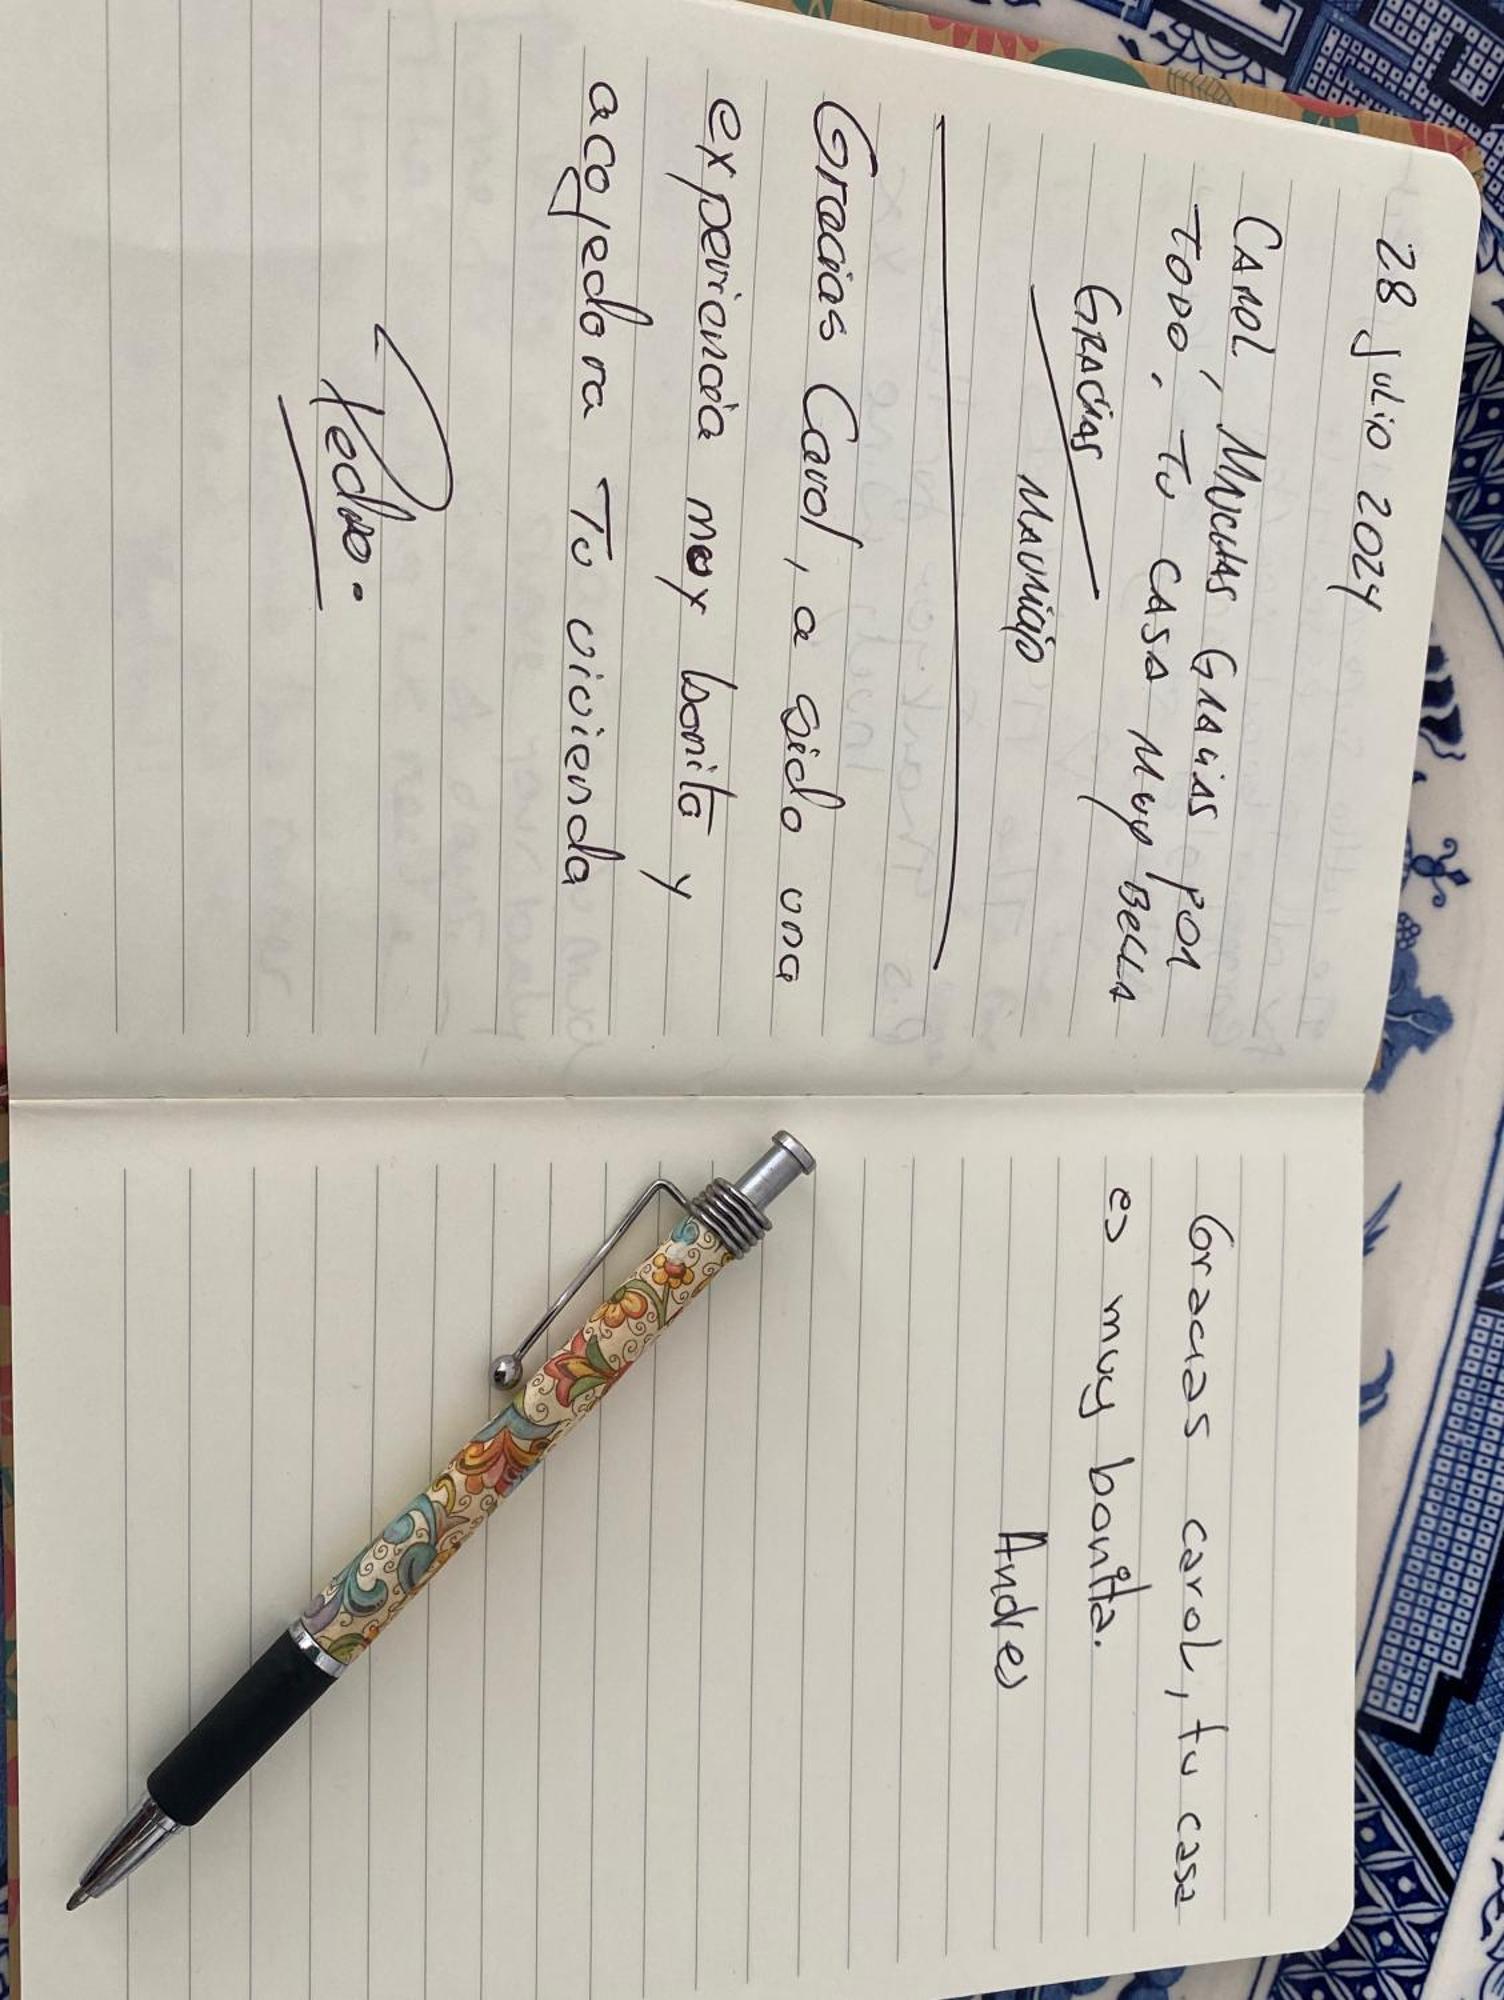 28 Julio 2024
CAROL, MUCHAS GRACIAS POR
TODO, TU CASA MUY BELLA
GRACIAS
MAURICIO
Gracias Carol, a sido una
experiencia muy bonita y
acojedora Tu vivienda
Pedro.
Gracias carol, tu casa
es muy bonita.
Andres